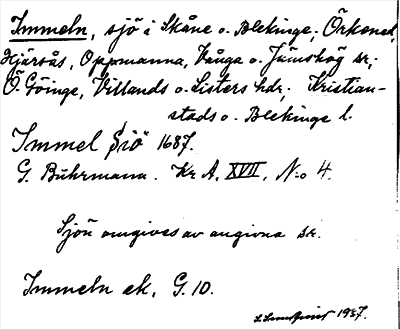 Immeln, sjö i Skåne o. Blekinge; Örkened,
Hjärsås, Oppmanna, Vånga o. Jämshög sr;
Ö. Göinge, Villands o. Listers hdr; Kristian-
stads o. Blekinge l.
Immel Siö 1687.
G. Buhrmann. Kr A, XVII, N:o 4.
Sjön omgives av angivna sr.
Immeln ek, G. 10.
1937.